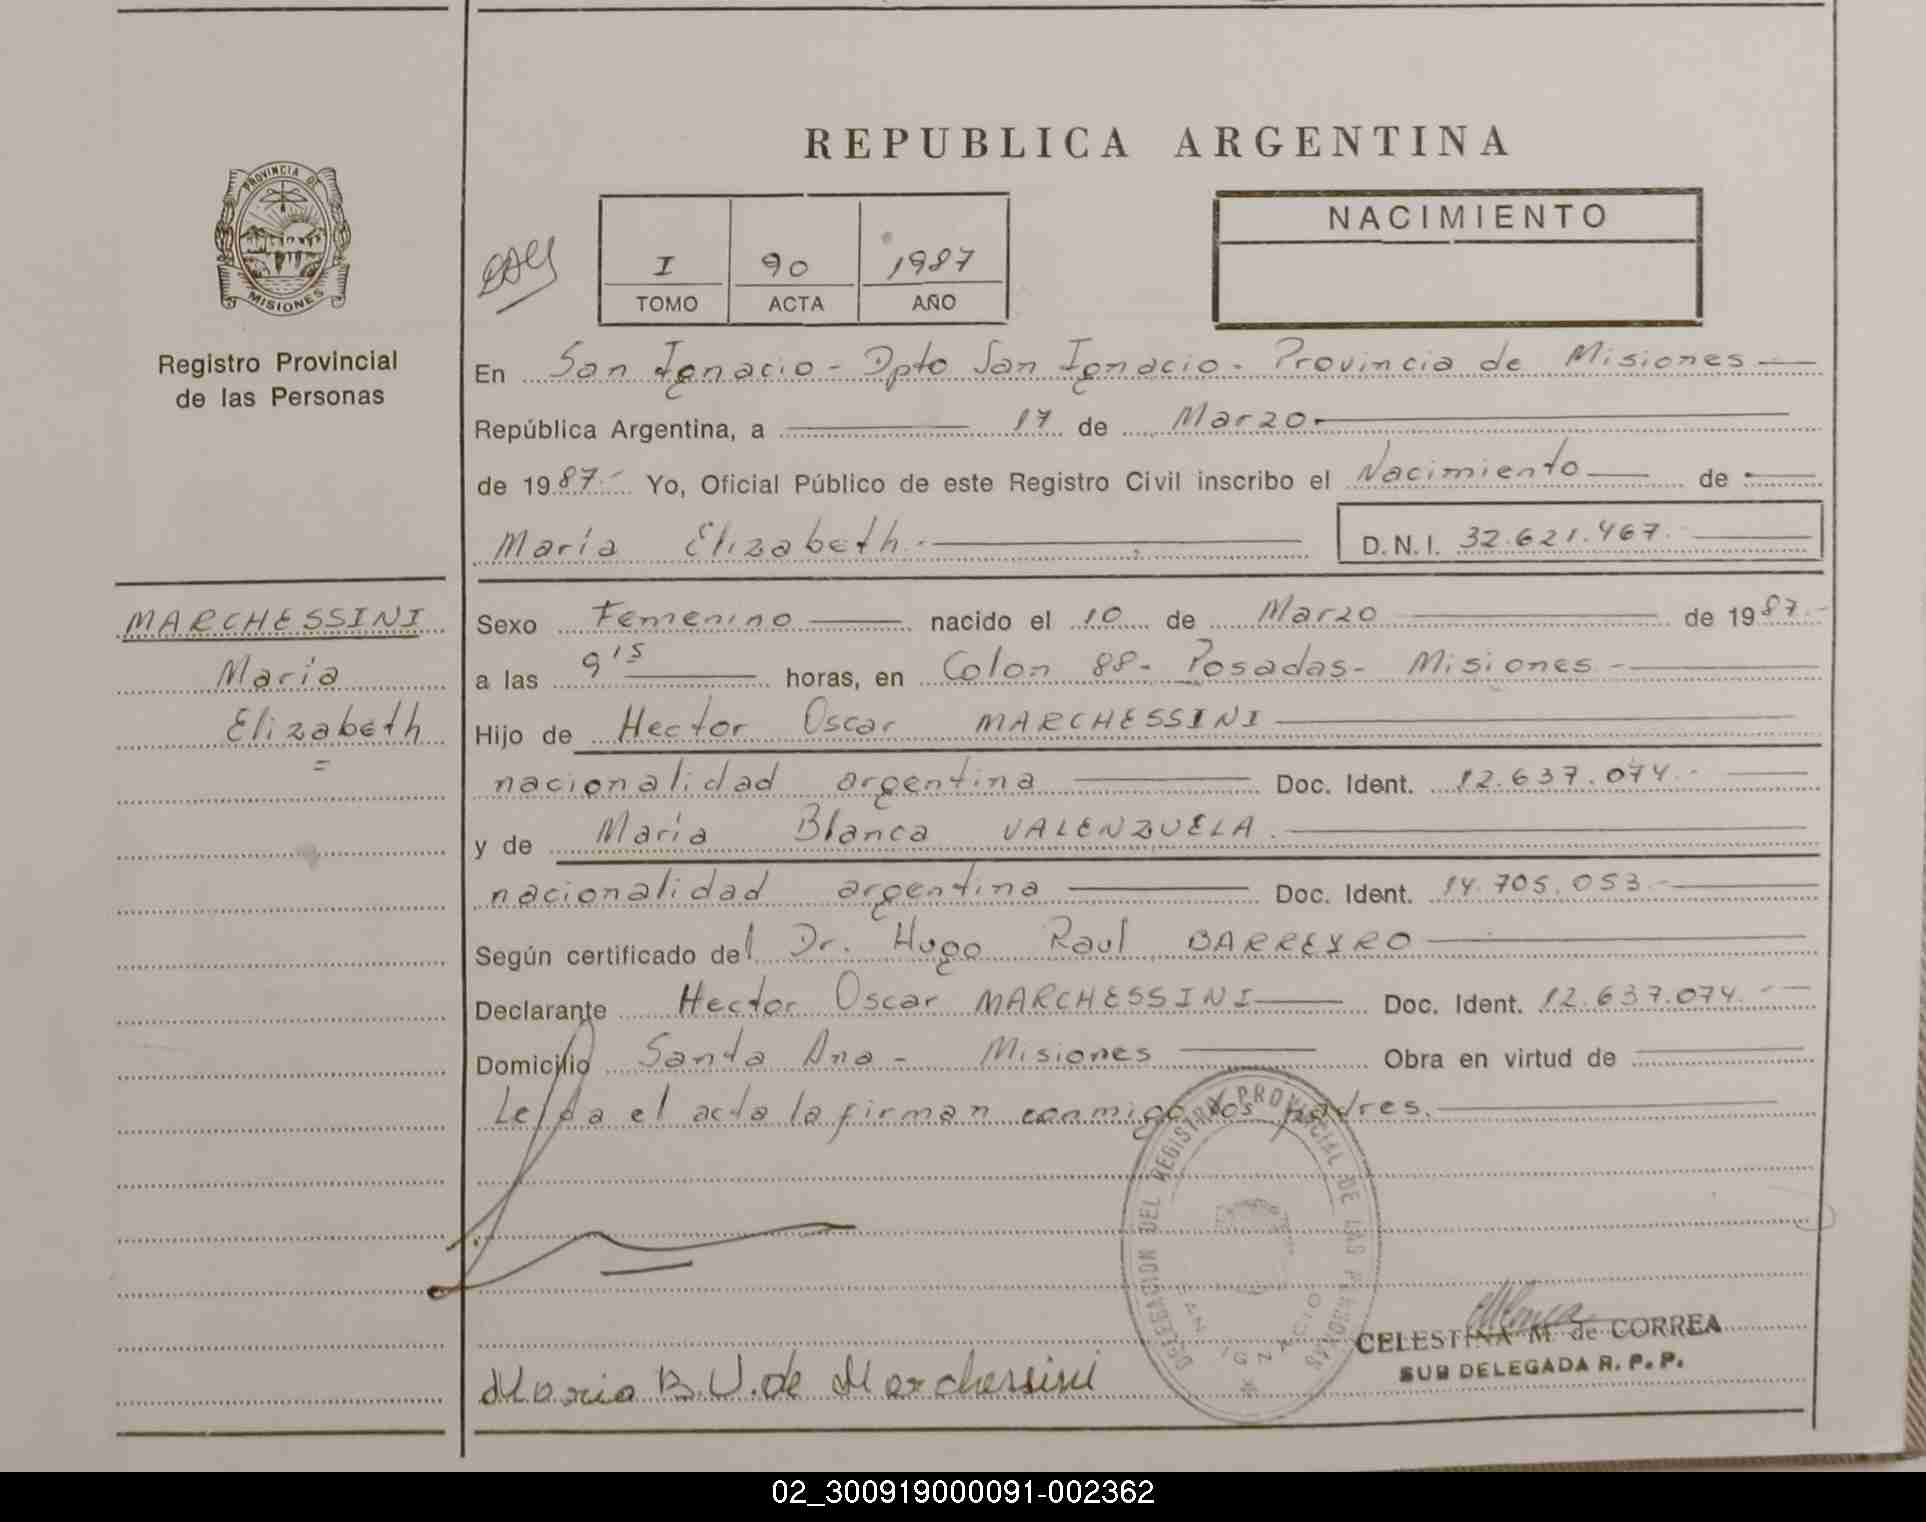 REPUBLICA ARGENTINA
PROVINCIA DE
MISIONES
Registro Provincial
de las Personas
I 90 1987
TOMO ACTA AÑO
NACIMIENTO
En San Ignacio - Dpto San Ignacio - Provincia de Misiones
República Argentina, a 17 de Marzo
de 1987 Yo, Oficial Público de este Registro Civil inscribo el Nacimiento de
María Elizabeth D.N.I. 32.621.467
MARCHESSINI
María
Elizabeth
Sexo Femenino nacido el 10 de Marzo de 1987
a las 9 15 horas, en Colon 88 - Posadas - Misiones
Hijo de Hector Oscar MARCHESSINI
nacionalidad argentina Doc. Ident. 12.637.074
y de María Blanca VALENZUELA
nacionalidad argentina Doc. Ident. 14.705.053
Según certificado del Dr. Hugo Raul BARREYRO
Declarante Hector Oscar MARCHESSINI Doc. Ident. 12.637.074
Domicilio Santa Ana - Misiones Obra en virtud de
Leída el acta la firman conmigo los padres.
DELEGACION DEL REGISTRO PROVINCIAL DE LAS PERSONAS
SAN IGNACIO
CELESTINA M. de CORREA
SUB DELEGADA R. P. P.
Maria B. V. de Marchessini
02_300919000091-002362